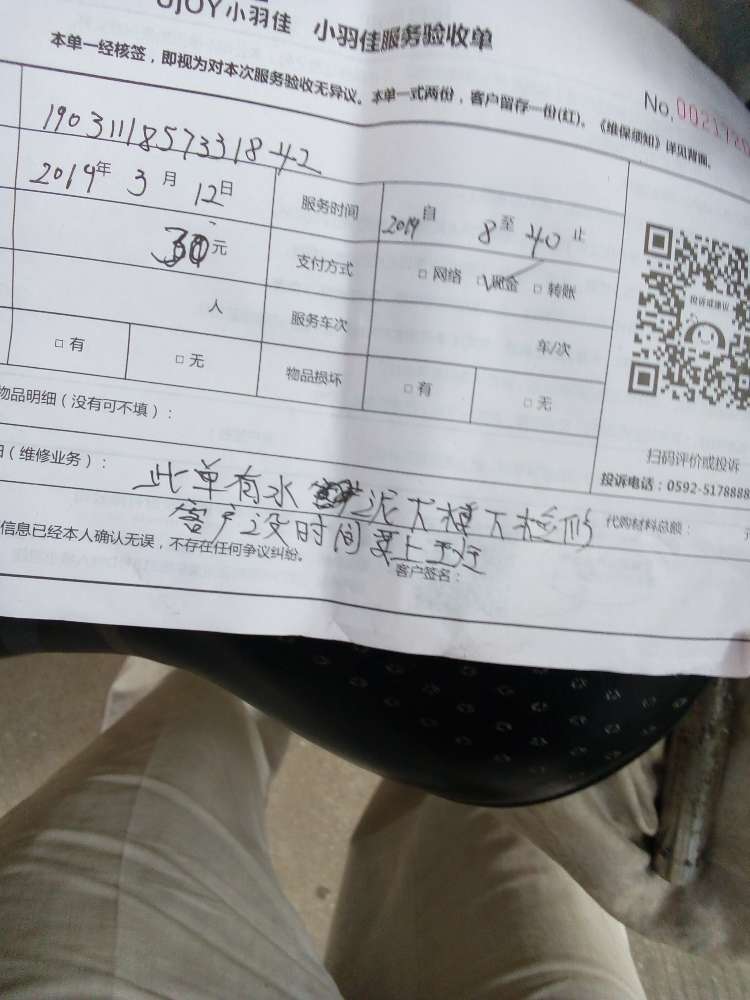 OJOY小羽佳 小羽佳服务验收单
本单一经核签，即视为对本次服务验收无异议。本单一式两份，客户留存一份(红)。《维保须知》详见背面。
No.0021
19031118573318-42
2019年 3月 12日 服务时间 2019 自 8 至 40 止
元 支付方式 □ 网络 □ 现金 □ 转账
人 服务车次 车/次
□ 有 □ 无 物品损坏 □ 有 □ 无
投诉或建议
扫码评价或投诉
投诉电话：0592-5178888
物品明细（没有可不填）：
（维修业务）：
此单有水 大楼下检修
代购材料总额：
客户没时间要上班
信息已经本人确认无误，不存在任何争议纠纷。
客户签名：